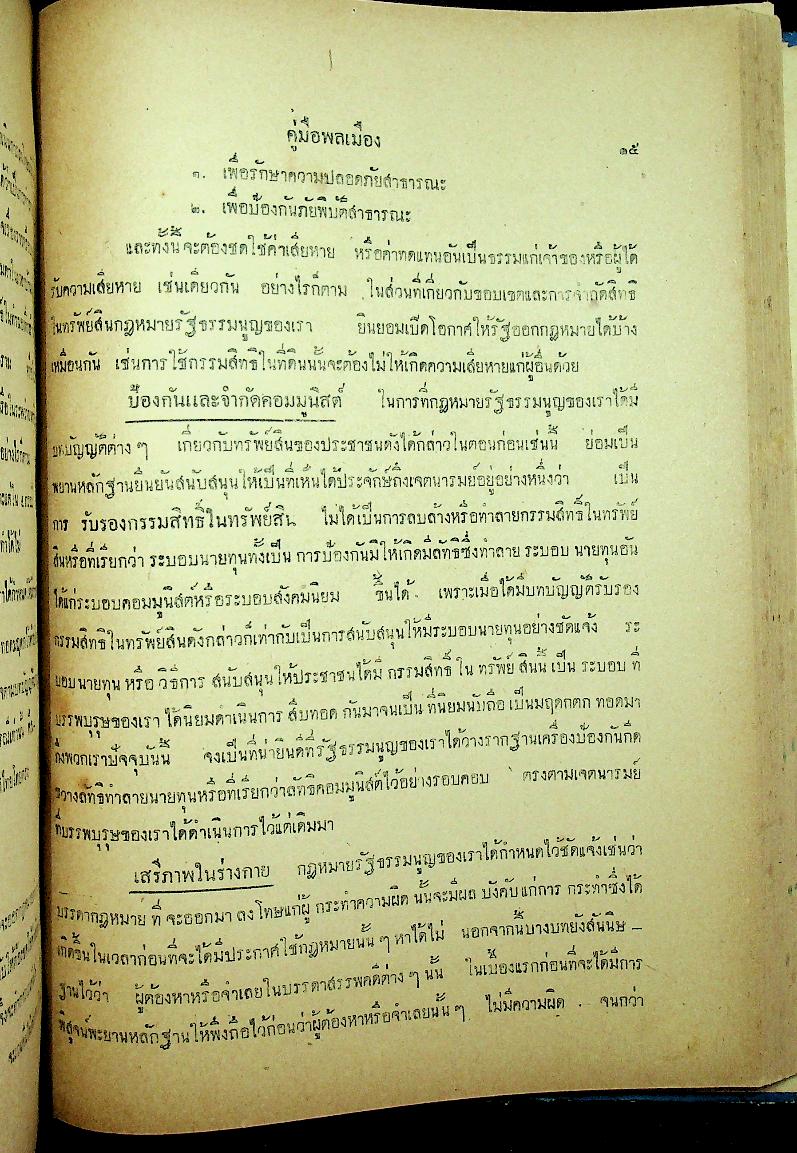 คู่มือพลเมือง
๑๕
๑. เพื่อรักษาความปลอดภัยสาธารณะ
๒. เพื่อป้องกันภัยพิบัติสาธารณะ
และทั้งนี้จะต้องชดใช้ค่าเสียหาย หรือค่าทดแทนอันเป็นธรรมแก่เจ้าของหรือผู้ได้
รับความเสียหาย เช่นเดียวกัน อย่างไรก็ตาม ในส่วนที่เกี่ยวกับขอบเขตและการจำกัดสิทธิ
ในทรัพย์สินกฎหมายรัฐธรรมนูญของเรา ยินยอมเปิดโอกาศให้รัฐออกกฎหมายได้บ้าง
เหมือนกัน เช่นการใช้กรรมสิทธิในที่ดินนั้นจะต้องไม่ให้เกิดความเสียหายแก่ผู้อื่นด้วย
ป้องกันและจำกัดคอมมูนิสต์ ในการที่กฎหมายรัฐธรรมนูญของเราได้มี
บทบัญญัติต่าง ๆ เกี่ยวกับทรัพย์สินของประชาชนดังได้กล่าวในตอนก่อนเช่นนี้ ย่อมเป็น
พยานหลักฐานยืนยันสนับสนุนให้เป็นที่เห็นได้ประจักษ์ถึงเจตนารมย์อยู่อย่างหนึ่งว่า เป็น
การ รับรองกรรมสิทธิ์ในทรัพย์สิน ไม่ได้เป็นการลบล้างหรือทำลายกรรมสิทธิ์ในทรัพย์
สินหรือที่เรียกว่า ระบอบนายทุนทั้งเป็น การป้องกันมิให้เกิดมีลัทธิซึ่งทำลาย ระบอบ นายทุนอัน
ได้แก่ระบอบคอมมูนิสต์หรือระบอบสังคมนิยม ขึ้นได้ เพราะเมื่อได้มีบทบัญญัติรับรอง
กรรมสิทธิในทรัพย์สินดังกล่าวก็เท่ากับเป็นการสนับสนุนให้มีระบอบนายทุนอย่างชัดแจ้ง ระ
บอบนายทุน หรือ วิธีการ สนับสนุนให้ประชาชนได้มี กรรมสิทธิ์ ใน ทรัพย์ สินนี้ เป็น ระบอบ ที่
บรรพบุรุษของเรา ได้นิยมดำเนินการ สืบทอด กันมาจนเป็น ที่นิยมนับถือ เป็นมฤดกตก ทอดมา
ถึงพวกเราปัจจุบันนี้ จึงเป็นที่น่ายินดีที่รัฐธรรมนูญของเราได้วางรากฐานเครื่องป้องกันกีด
ขวางลัทธิทำลายนายทุนหรือที่เรียกว่าลัทธิคอมมูนิสต์ไว้อย่างรอบคอบ ตรงตามเจตนารมย์
ที่บรรพบุรุษของเราได้ดำเนินการไว้แต่เดิมมา
เสรีภาพในร่างกาย กฎหมายรัฐธรรมนูญของเราได้กำหนดไว้ชัดแจ้งเช่นว่า
บรรดากฎหมาย ที่ จะออกมา ลงโทษแก่ผู้ กระทำความผิด นั้นจะมีผล บังคับแก่การ กระทำซึ่งได้
เกิดขึ้นในเวลาก่อนที่จะได้มีประกาศใช้กฎหมายนั้น ๆ หาได้ไม่ นอกจากนี้บางบทยังสันนิษ –
ฐานไว้ว่า ผู้ต้องหาหรือจำเลยในบรรดาสรรพคดีต่าง ๆ นั้น ในเบื้องแรกก่อนที่จะได้มีการ
พิสูจน์พะยานหลักฐานให้พึงถือไว้ก่อนว่าผู้ต้องหาหรือจำเลยนั้น ๆ ไม่มีความผิด จนกว่า